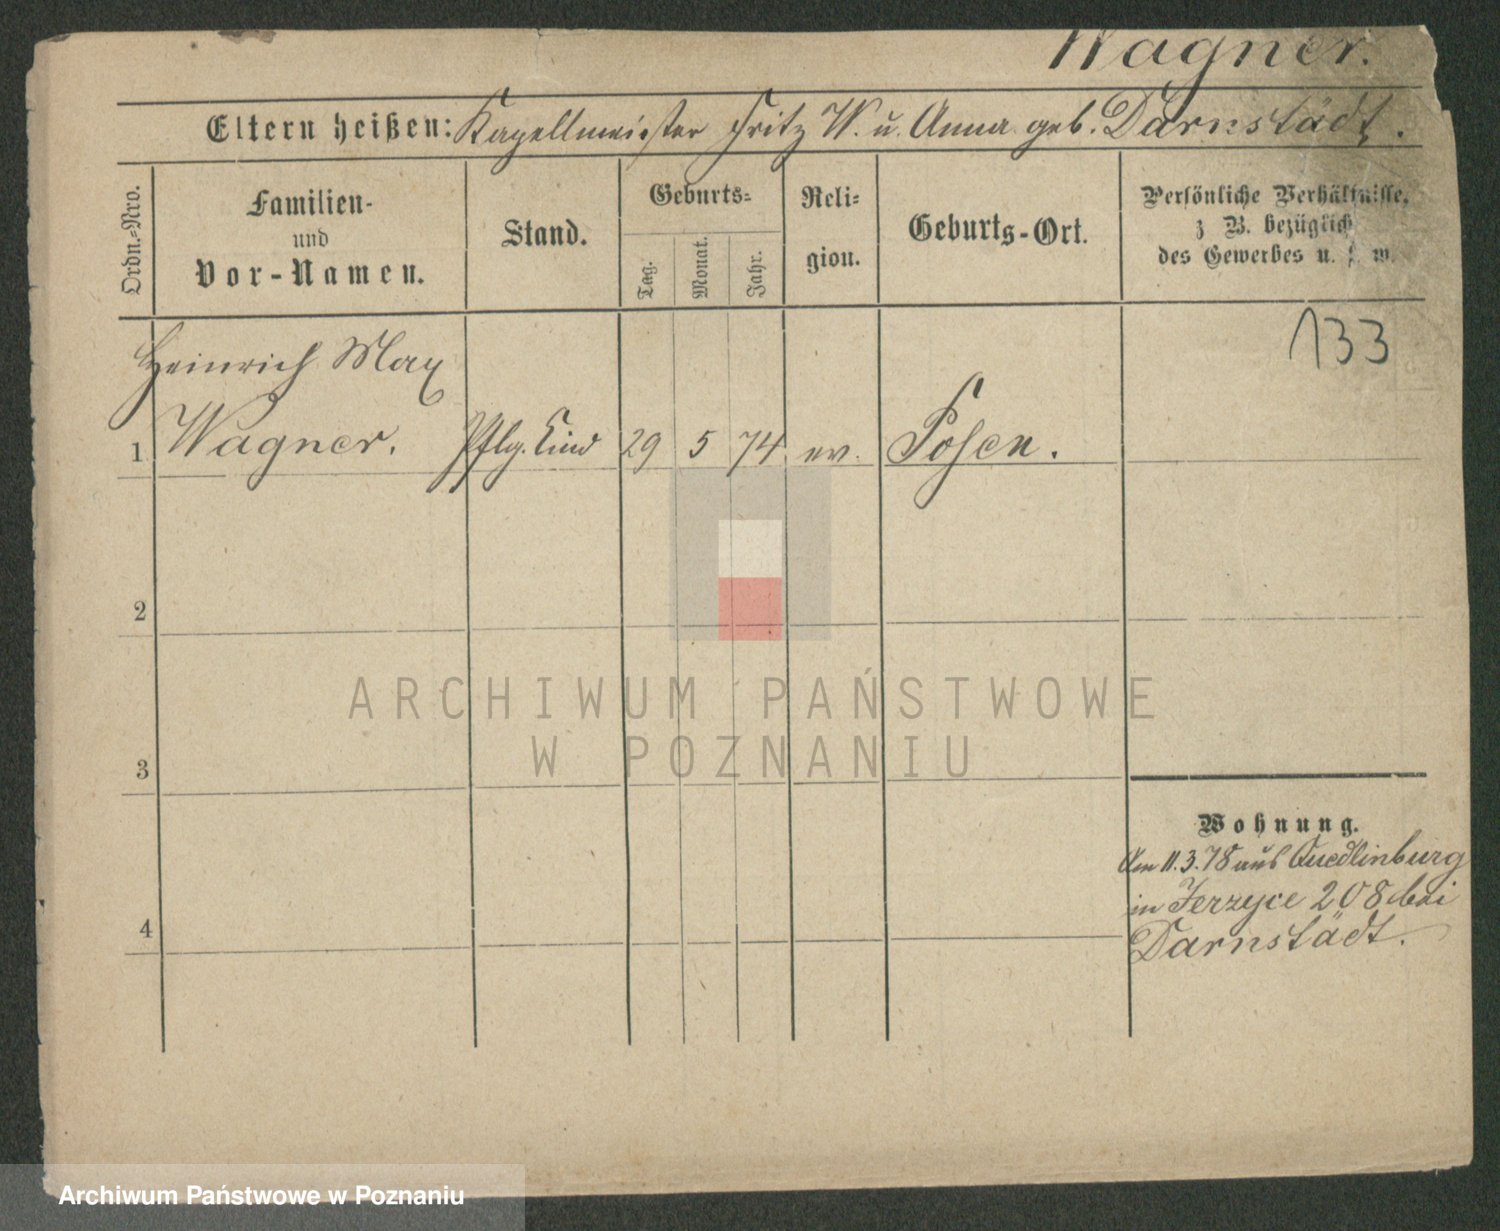 Wagner.
Eltern heißen: Kapellmeister Fritz W. u. Anna geb. Darnstädt.
Ordn.-Nro.
Familien-
und
Vor-Namen.
Stand.
Geburts-
Tag.
Monat.
Jahr.
Reli-
gion.
Geburts-Ort.
Persönliche Verhältnisse,
z B. bezüglich
des Gewerbes u. s. w.
133
Heinrich Max
1 Wagner. Pflg. Kind 29 5 74 ev. Posen.
2
3
4
Wohnung.
Am 11.3.78 aus Quedlinburg
in Jerzyce 208 bei
Darnstädt.
ARCHIWUM PAŃSTWOWE
W POZNANIU
Archiwum Państwowe w Poznaniu